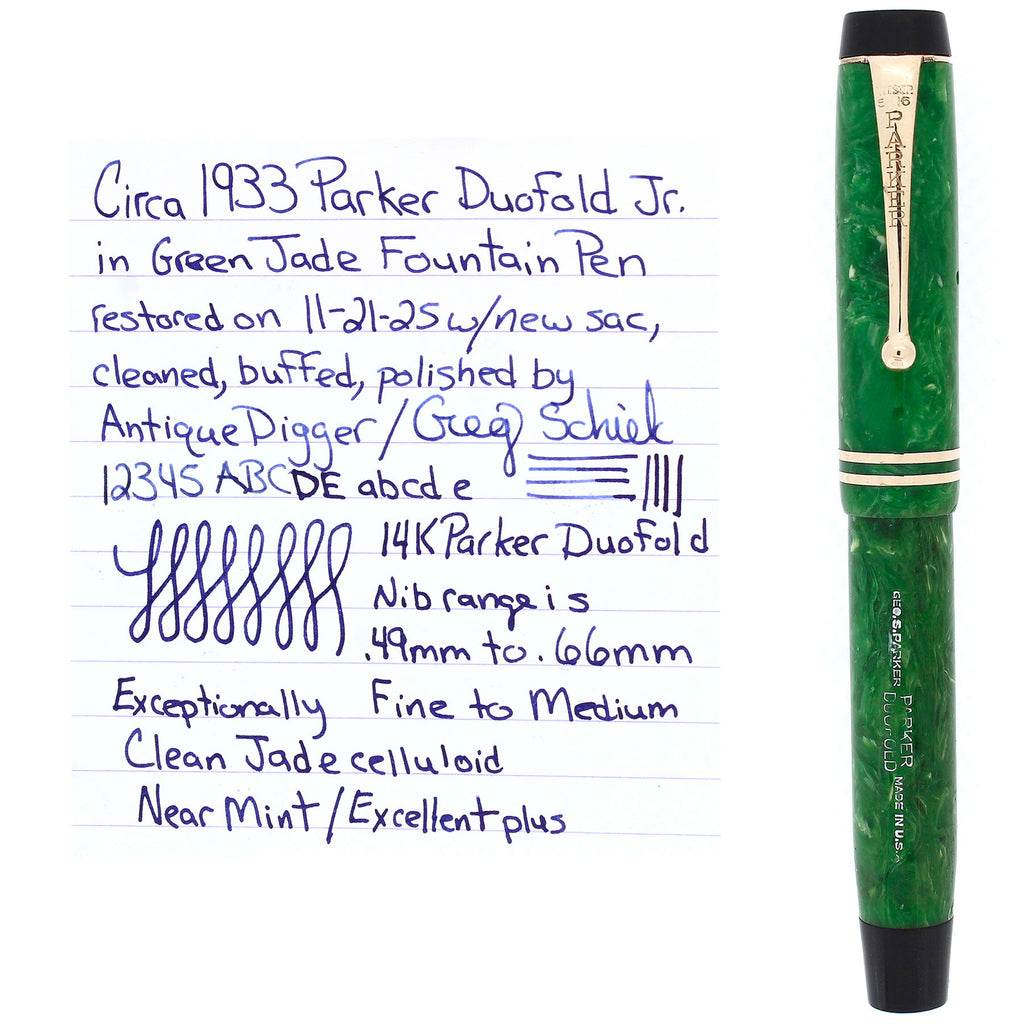 Circa 1933 Parker Duofold Jr.
in Green Jade Fountain Pen
restored on 11-21-25 w/new sac,
cleaned, buffed, polished by
Antique Digger / Greg Schiek
12345 ABCDE abcde
14K Parker Duofold
Nib range is
.49mm to .66mm
Exceptionally Fine to Medium
Clean Jade celluloid
Near Mint / Excellent plus
PARKER
GEO.S.PARKER
PARKER
DUOFOLD
MADE IN U.S.A